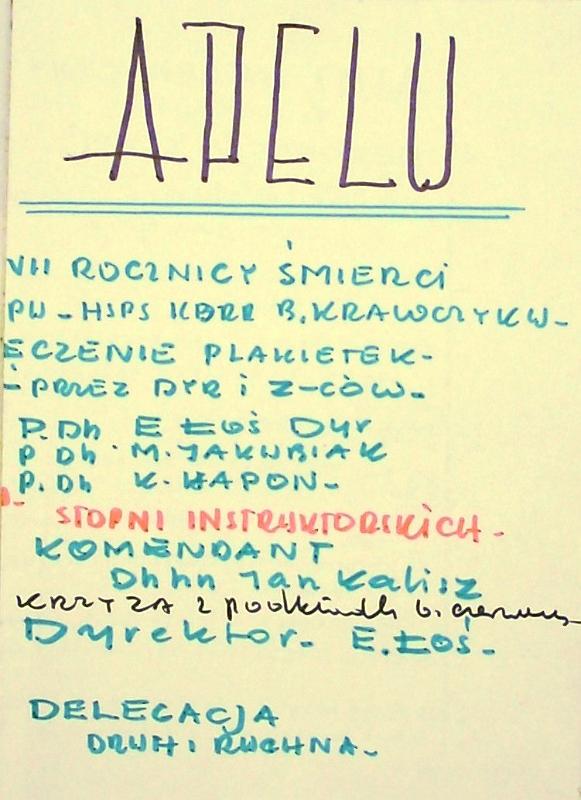 APELU
VII ROCZNICY ŚMIERCI
PW - HSPS KBRR B. KRAWCZYKW-
ECZENIE PLAKIETEK-
- PRZEZ DYR i Z-CÓW-
P. Dh E ŁOŚ Dyr
P Dh M. JAKUBIAK
P. Dh K. HAPON-
STOPNI INSTRUKTORSKICH-
KOMENDANT
Dhhn Jan Kalisz
KRZYŻA z
Dyrektor. E. Łoś-
DELEGACJA
DRUH i RUCHNA-